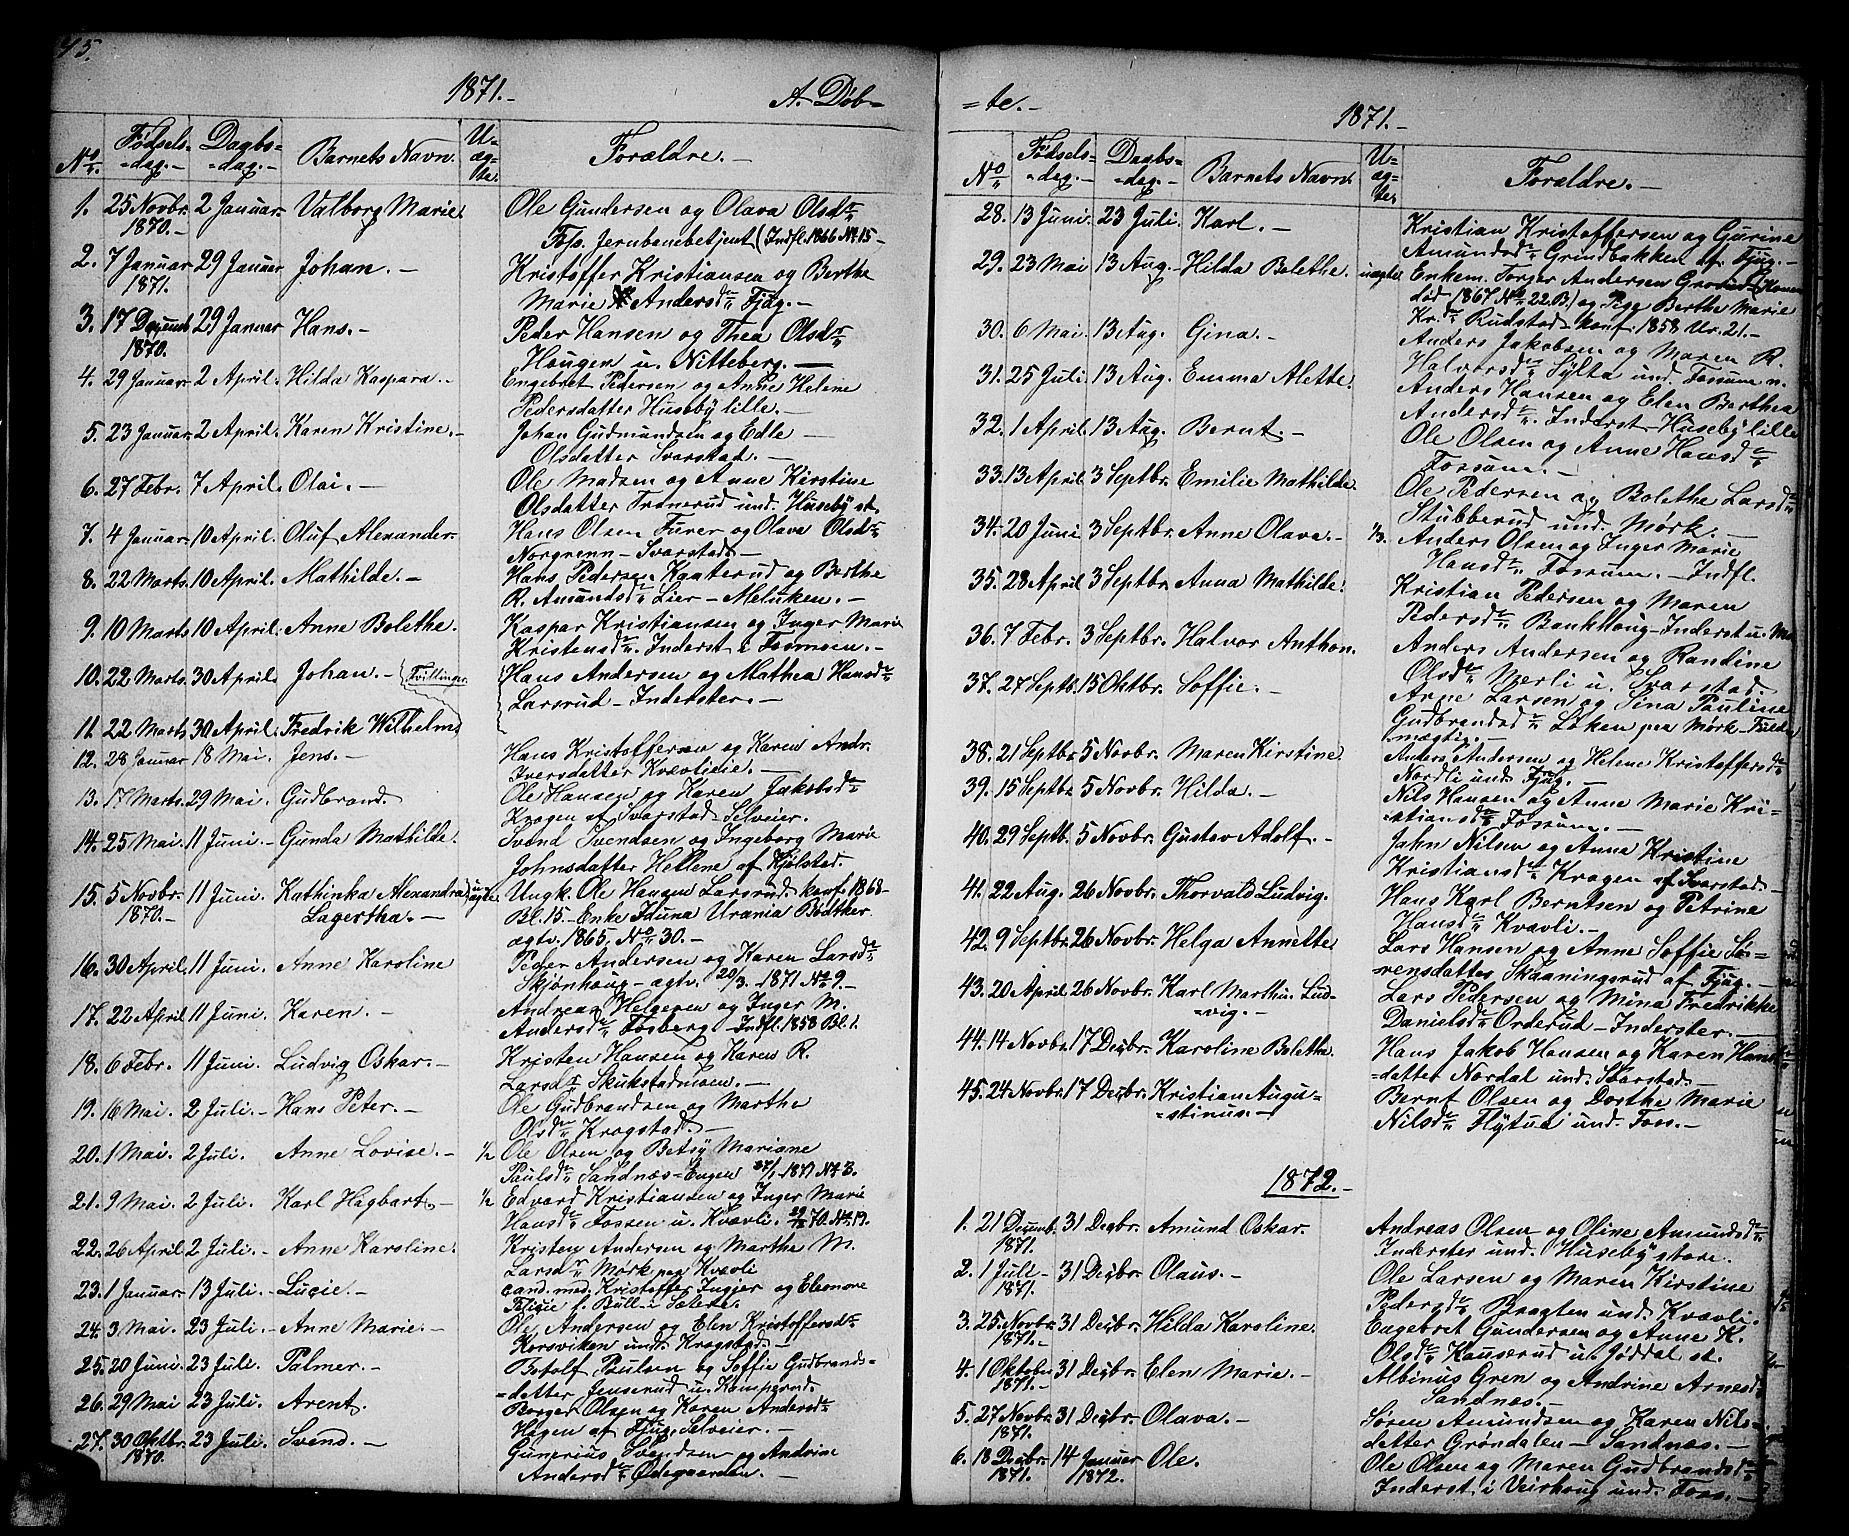 45.
1871.-
A. Døb=
No
Fødsels=dag.-
Daabs=dag.-
Barnets Navn.
U=æg=te.
Forældre.-
1. 25 Novbr. 1870.- 2 Januar- Valborg Marie. Ole Gundersen og Olava Olsdtr
Fp. Jernbanebetjent (Indfl. 1866 No. 15-
2. 7 Januar 1871. 29 Januar Johan.- Kristoffer Kristiansen og Berthe
Marie Andersdtr Fjüg.-
3. 17 Dezemb. 1870. 29 Januar Hans.- Peder Hansen og Thea Olsdtr
Haugen u. Nitteberg.-
4. 29 Januar 2 April. Hilda Kaspara.- Engebret Pedersen og Anne Heline
Pedersdatter Huseby lille.-
5. 23 Januar 2 April. Karen Kristine.- Johan Gudmundsen og Edle
Olsdatter Svarstad.-
6. 27 Febr. 7 April. Olai.- Ole Madsen og Anne Kirstine
Olsdatter Tranerud und. Huseby st.
7. 4 Januar 10 April. Oluf Alexander- Hans Olsen Furer og Olava Olsdtr
Norgrenn - Svarstad-
8. 22 Marts. 10 April. Mathilde.- Hans Pedersen Kaaterud og Berthe
R. Amundsdtr Lier - Meluken.-
9. 10 Marts 10 April. Anne Bolethe. Kaspar Kristiansen og Inger Marie
Kristensdtr. Inderst i Fosmoen.-
10. 22 Marts. 30 April. Johan.- (Tvillinger Hans Andersen og Mathea Hansdtr
Larsrud - Inderster.-
11. 22 Marts 30 April. Fredrik Wilhelm
12. 28 Januar 18 Mai. Jens.- Hans Kristoffersen og Karen Andr.
Iversdatter Kvævlieie.-
13. 17 Marts. 29 Mai. Gudbrand. Ole Hansen og Karen Jakobsdtr
Kragen af Svarstad Selveier.
14. 25 Mai. 11 Juni.- Gunda Mathilde. Svend Svendsen og Ingeborg Marie
Johnsdatter Hellene af Kjølstad.
15. 5 Novbr. 1870.- 11 Juni. Kathinka Alexandra Lagertha.- uægte. Ungk. Ole Hansen Larsrud konf. 1868-
Bl. 15.- Enke Iduna Urania Bødtker
ægtv. 1865. No 30.-
16. 30 April. 11 Juni. Anne Karoline Peder Andersen og Karen Larsdtr
Skjønhaug - ægtv. 20/3. 1871 No 9.-
17. 22 April 11 Juni. Karen.- Andreas Helgesen og Inger M.
Andersdtr Fosberg - Indfl. 1858 Bl. 1.
18. 6 Febr. 11 Juni. Ludvig Oskar.- Kristen Hansen og Karen R.
Larsdtr Skukstadmoen.-
19. 16 Mai. 2 Juli.- Hans Peter.- Ole Gudbrandsen og Marthe
Olsdtr Kragstad.-
20. 1 Mai. 2 Juli. Anne Lovise.- 1/2 Ole Olsen og Betsy Mariane
Paulsdtr Sandnæs=Engen 27/1 1871 No 3.
21. 9 Mai. 2 Juli. Karl Hagbart. 1/2 Edvard Kristiansen og Inger Marie
Hansdtr Fossen u. Kvævli. 29/12 70. No. 19.
22. 26 April 2 Juli.- Anne Karoline. Kristen Andersen og Marthe M.
Larsdtr Mørk paa Kvævli
23. 1 Januar- 13 Juli.- Lucie.- cand. med. Kristoffer Ingier og Eleonore
Felicie f. Bull i Sætere.
24. 3 Mai. 23 Juli.- Anne Marie.- Ole Andersen og Elen Kristoffersdtr
Korsviken und. Kragstad-
25. 20 Juni 23 Juli. Palmer.- Botolf Paulsen og Soffie Gudbrands=
=datter Jenserud u. Kamperud.
26. 29 Mai 23 Juli. Arent. Borger Olsen og Karen Andersdtr
Hagen af Fjüg. Selveier.-
27. 30 Oktbr. 1870. 23 Juli. Svend.- Gunerius Svendsen og Andrine
Andersdtr Ødegaarden.-
=te.-
1871.-
No
Fødsels=dag.-
Daabs=dag.-
Barnets Navn.
U=æg=te.
Forældre.-
28. 13 Juni. 23 Juli. Karl. Kristian Kristoffersen og Gurine
Amundsdtr Grindbakken af Fjüg.-
29. 23 Mai 13 Aug. Hilda Bolethe. uægte Enkem. Torger Andersen (Konen
død 1867 No. 22. B) og Pige Berthe Marie
Kr.dtr Rudstad konf. 1858 Nr. 21.-
30. 6 Mai. 13 Aug. Gina.- Anders Jakobsen og Maren R.
Halvorsdtr Sylta und. Fossum n.
31. 25 Juli. 13 Aug. Emma Alette. Anders Hansen og Elen Barthea
Andersdtr. Inderst Huseby lille
32. 1 April. 13 Aug. Bernt.- Ole Olsen og Anne Hansdtr
Fossum.-
33. 13 April 3 Septbr. Emilie Mathilde. Ole Pedersen og Bolethe Larsdtr
Stubberud und. Mørk.-
34. 20 Juni 3 Septbr. Anne Olava.- 1/3. Anders Olsen og Inger Marie
Hansdtr Fossum.- Indfl.
35. 28 April 3 Septbr. Anna Mathilde. Kristian Pedersen og Maren
Pedersdtr Bankhaug - Inderst u.
36. 7 Febr. 3 Septbr. Halvor Anthon. Anders Andersen og Randine
Olsdtr Merli u. Svarstad.
37. 27 Septb. 15 Oktbr. Soffie.- Arne Larsen og Tina Pauline
Gudbrandsdtr Løken paa Mørk - Fulda
mægtig.-
38. 21 Septbr. 5 Novbr. Maren Kirstine. Anders Andersen og Helene Kristoffersdtr
Nordli und. Fjüg.-
39. 15 Septbr 5 Novbr. Hilda.- Nils Hansen og Anne Marie Kri=
=stiansdtr Fossum.-
40. 29 Septb. 5 Novbr. Gustav Adolf.- Jahn Nilsen og Anne Kristine
Kristiansdtr Kragen af Svarstad.-
41. 22 Aug. 26 Novbr. Thorvald Ludvig. Hans Karl Berntsen og Petrine
Hansdtr Kvævli.-
42. 9 Septbr. 26 Novbr. Helga Annette Lars Hansen og Anne Soffie Sø=
rensdatter Skaaningsrud af Fjüg.-
43. 20 April 26 Novbr. Karl Marthin Lud=
=vig.- Lars Pedersen og Mina Fredrikke
Danielsdtr Orderud - Inderster.-
44. 14 Novbr. 17 Dezbr. Karoline Bolethe. Hans Jakob Hansen og Karen Hans
=datter Nordal und. Svarstad.-
45. 24 Novbr. 17 Dezbr. Kristian Augu=
=stinus.- Bernt Olsen og Dorthe Marie
Nilsdtr Flytua und. Foss.-
1872.-
1. 21 Dezemb. 1871. 31 Dezbr. Amund Oskar. Andreas Olsen og Oline Amundsdtr
Inderster und. Huseby store.
2. 1 Juli- 1871. 31 Dezbr. Olaus.- Ole Larsen og Maren Kirstine
Pedersdtr Bragten und. Kvævli.
3. 25 Novbr. 1871. 31 Dezbr. Hilda Karoline. Engebret Gundersen og Anne K.
Olsdtr Kauserud u. Jøddal st.
4. 1 Oktober 1871.- 31 Dezbr. Elen Marie.- Albinus Gren og Andrine Arnesd
Sandnæs.-
5. 27 Novbr. 1871. 31 Dezbr. Olava.- Søren Amundsen og Karen Nils=
datter Grøndalen - Sandnæs.-
6. 18 Dezbr. 1871. 14 Januar 1872. Ole. Ole Olsen og Maren Gudbrandsdtr
Inderst. i Veirhaug und. Foss.-